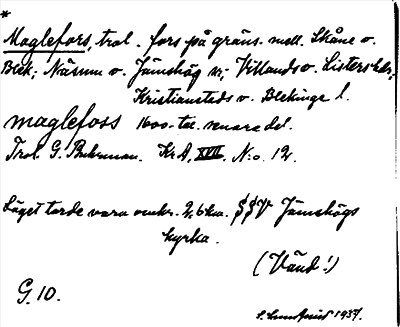 *
Maglefors, trol. fors på gräns. mell. Skåne o.
Blek; Näsum o. Jämshög sn; Villands o. Listers hdr,
Kristianstads o. Blekinge l.
maglefoss 1600-tal. senare del.
Trol. G. Buhrman. KrA, XVII, N:o. 12.
Läget torde vara omkr. 2,6 km. SSV Jämshögs
kyrka.
(Vänd!)
G. 10.
S. Lundquist 1937.